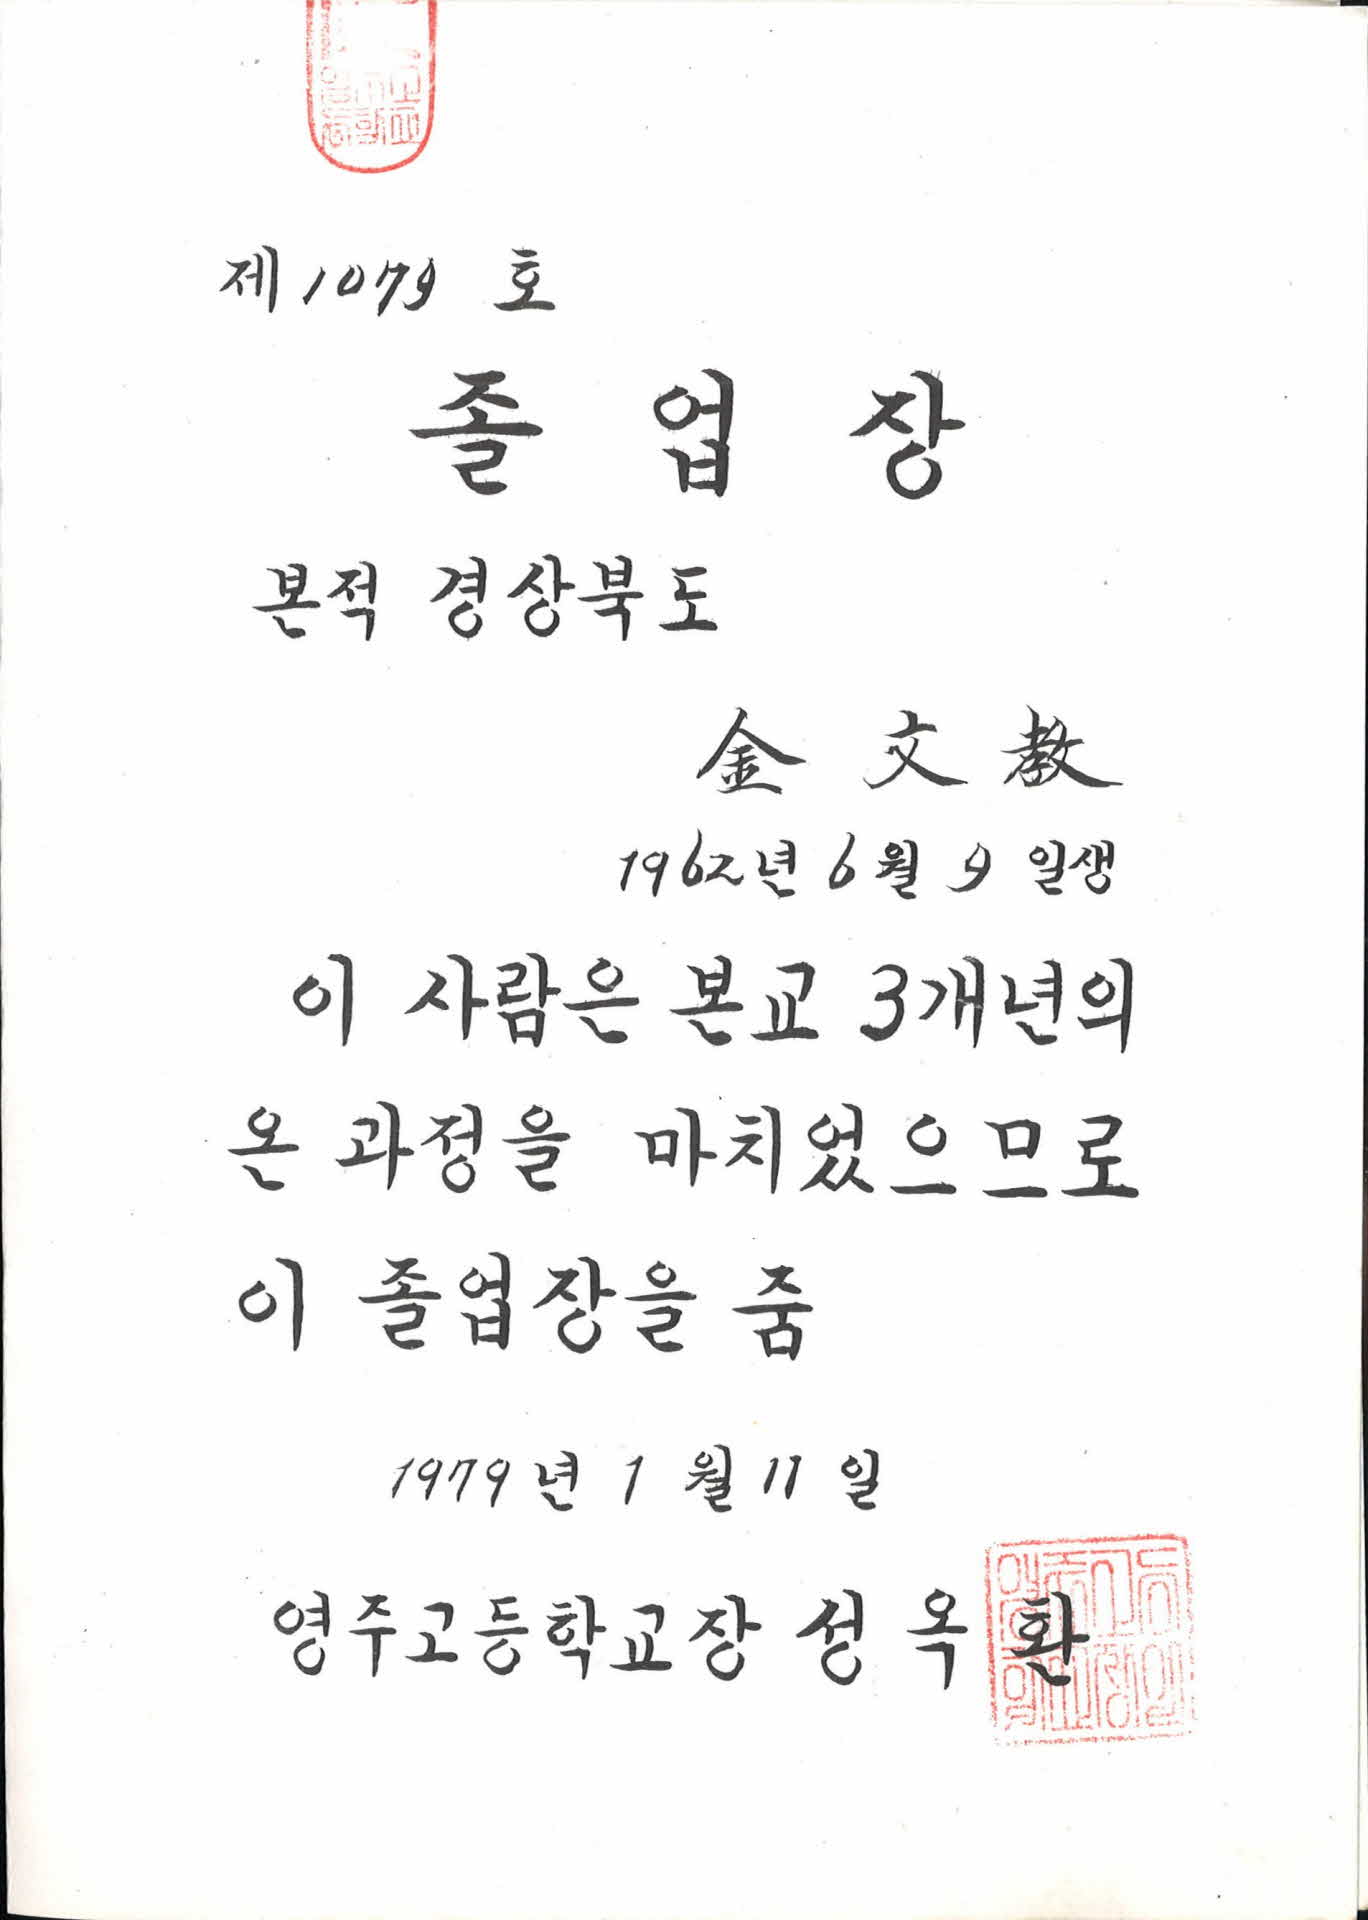 제 1079 호
졸 업 장
본적 경상북도
金 文 敎
1962년 6월 9일생
이 사람은 본교 3개년의
온 과정을 마치었으므로
이 졸업장을 줌
1979년 1월 11일
영주고등학교장 성 옥 환